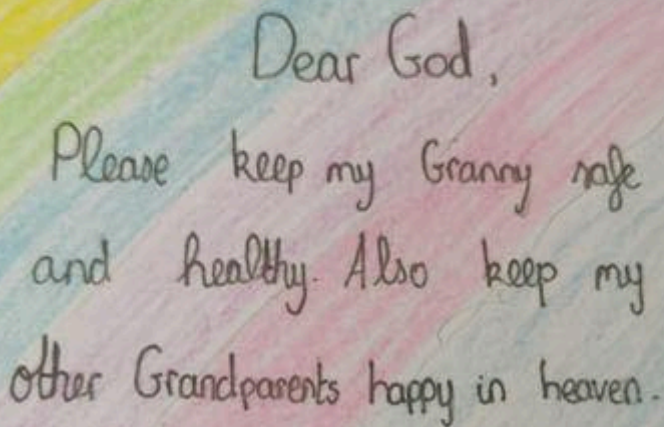 Dear God,
Please keep my Granny safe
and healthy. Also keep my
other Grandparents happy in heaven.